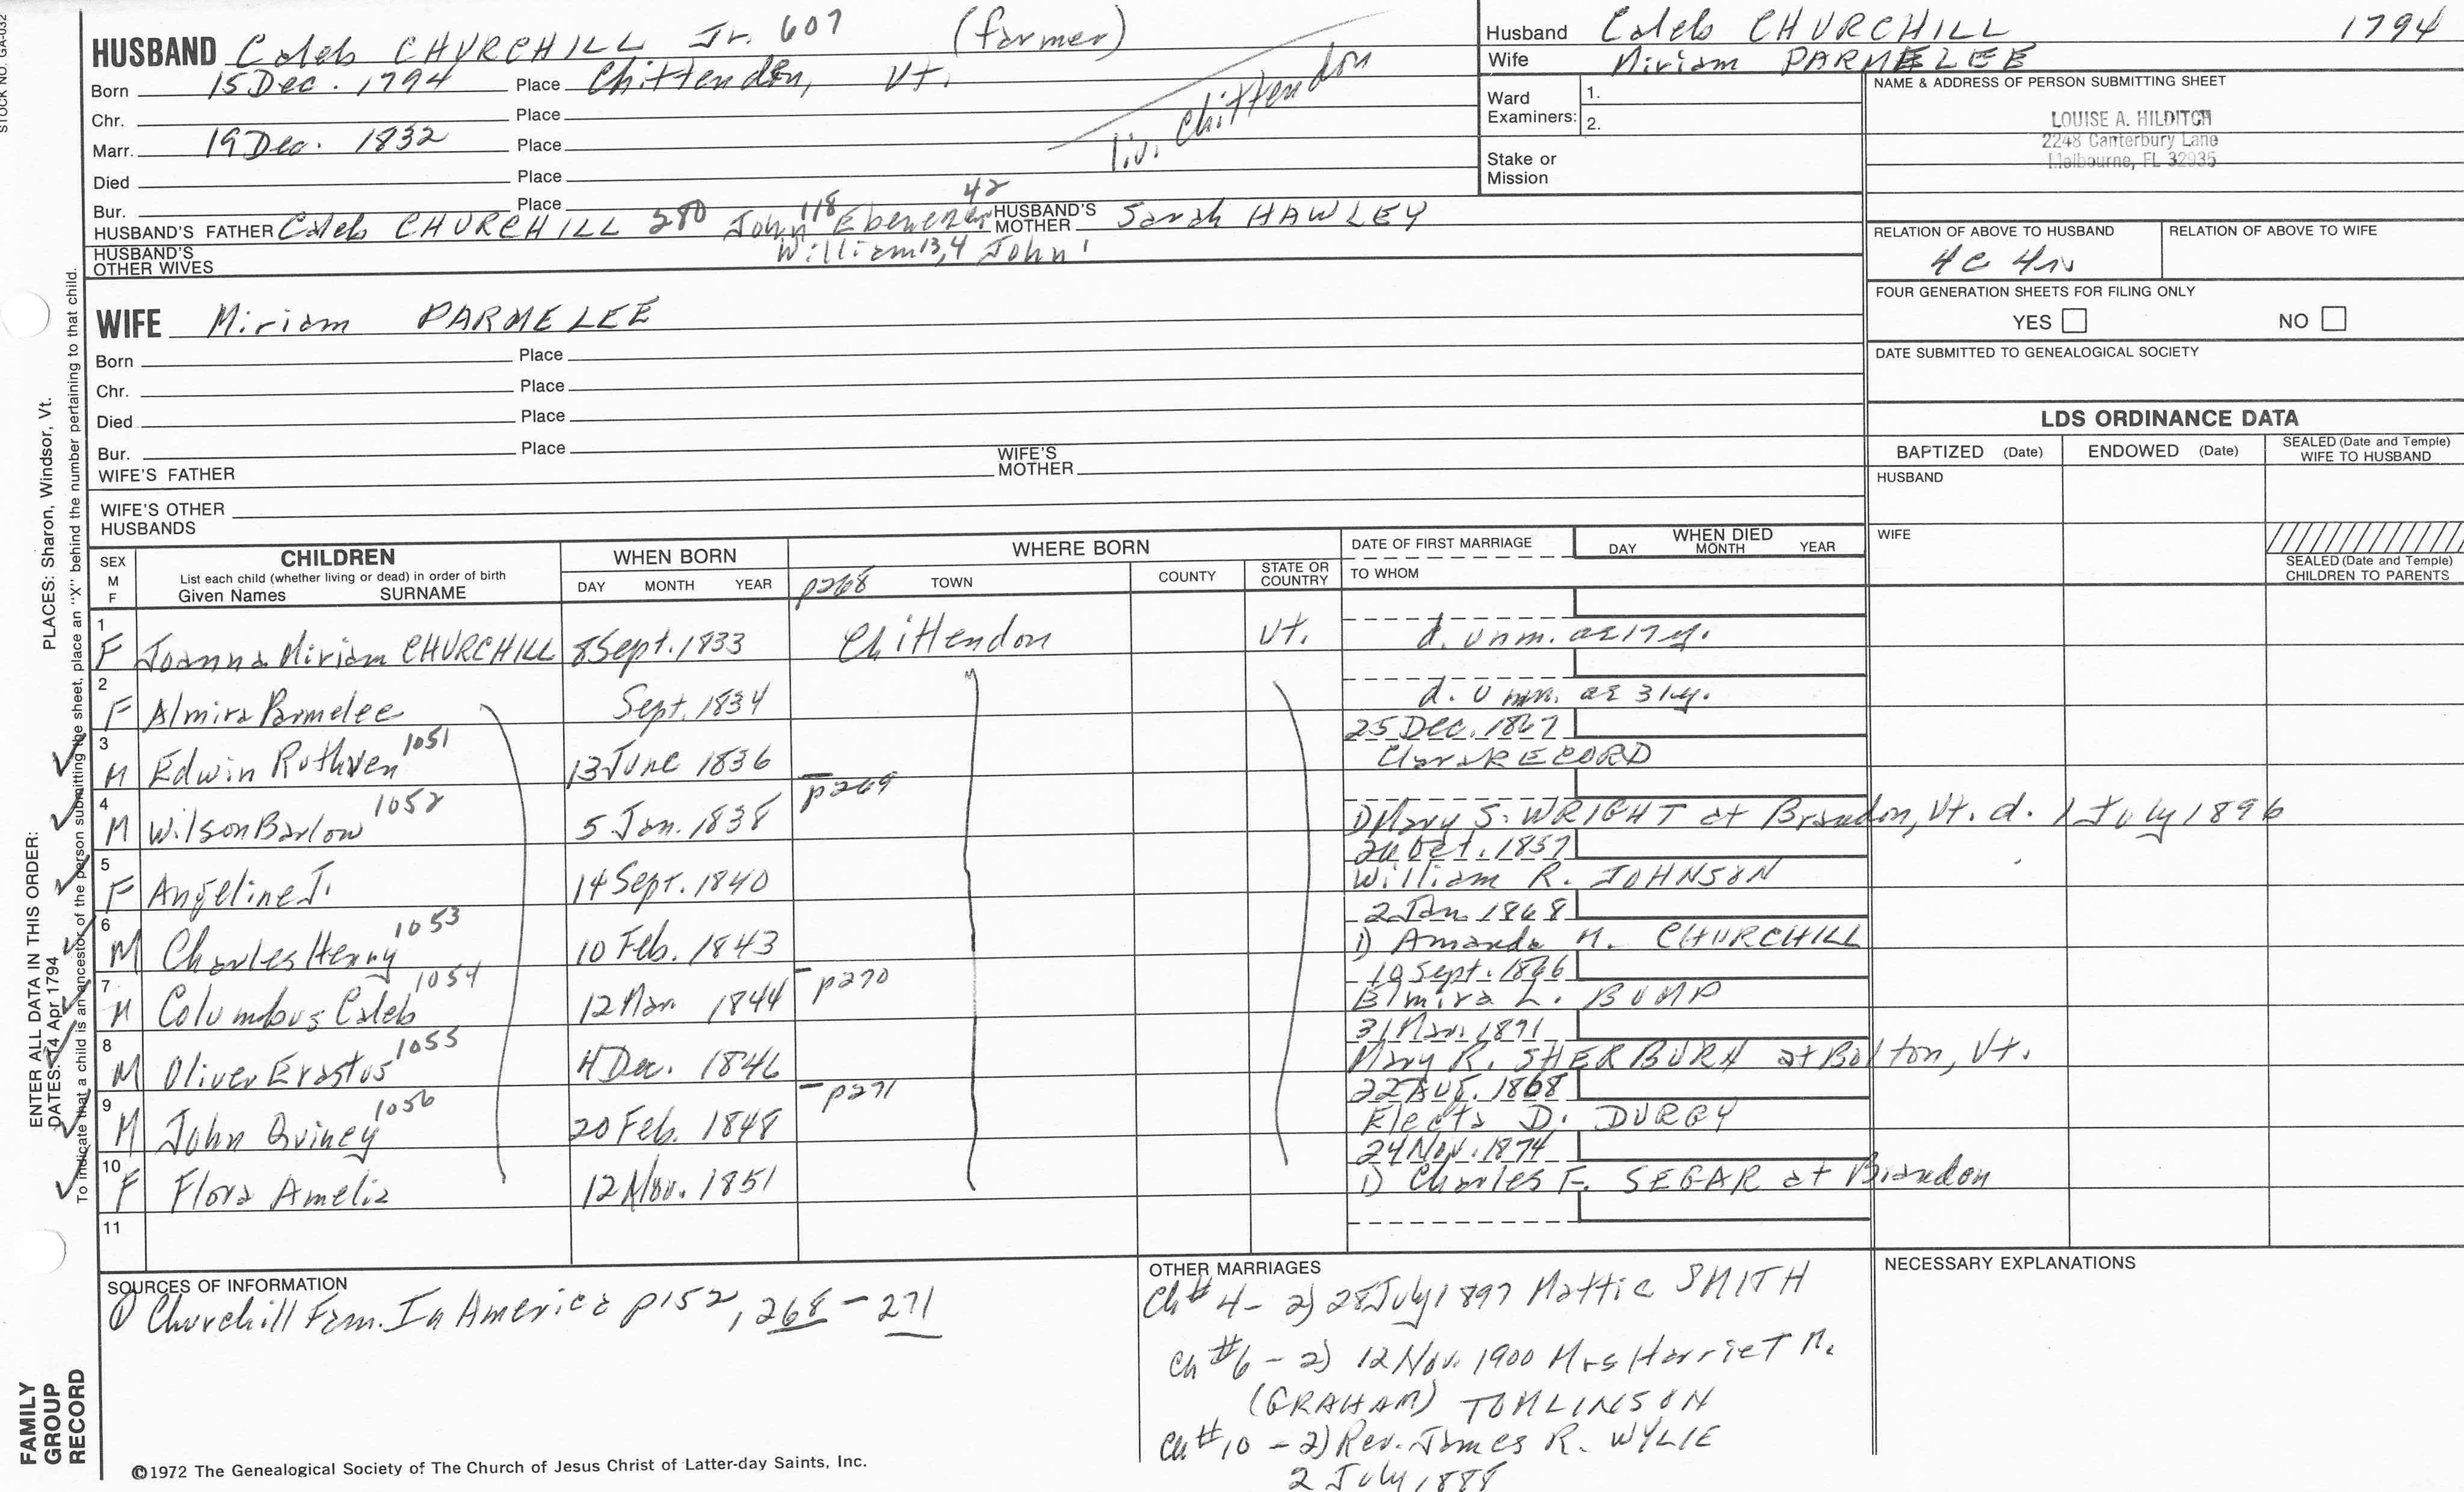 STOCK NO. GA-032
HUSBAND Caleb CHURCHILL Jr. 607 (farmer)
Born 15 Dec. 1794 Place Chittenden, Vt.
Chr. Place
Marr. 19 Dec. 1832 Place
liv. Chittendon
Died Place
Bur. Place
HUSBAND'S FATHER Caleb CHURCHILL 280 John 118 Ebenezer 42 HUSBAND'S MOTHER Sarah HAWLEY
William 13,4 John 1
HUSBAND'S OTHER WIVES
Husband Caleb CHURCHILL 1794
Wife Miriam PARMELEE
Ward Examiners: 1.
2.
Stake or Mission
NAME & ADDRESS OF PERSON SUBMITTING SHEET
LOUISE A. HILDITCH
2248 Canterbury Lane
Melbourne, FL 32935
RELATION OF ABOVE TO HUSBAND RELATION OF ABOVE TO WIFE
4c 4r
FOUR GENERATION SHEETS FOR FILING ONLY
YES NO
DATE SUBMITTED TO GENEALOGICAL SOCIETY
WIFE Miriam PARMELEE
Born Place
Chr. Place
Died Place
Bur. Place
WIFE'S FATHER WIFE'S MOTHER
WIFE'S OTHER HUSBANDS
LDS ORDINANCE DATA
BAPTIZED (Date) ENDOWED (Date) SEALED (Date and Temple) WIFE TO HUSBAND
HUSBAND
WIFE
SEALED (Date and Temple) CHILDREN TO PARENTS
SEX M F
CHILDREN
List each child (whether living or dead) in order of birth
Given Names SURNAME
WHEN BORN
DAY MONTH YEAR
WHERE BORN
p268 TOWN COUNTY STATE OR COUNTRY
DATE OF FIRST MARRIAGE
TO WHOM
WHEN DIED
DAY MONTH YEAR
1 F Joanna Miriam CHURCHILL 8 Sept. 1833 Chittendon Vt. d. unm. ae 17 y.
2 F Almira Parmelee Sept. 1834 d. unm. ae 31 y.
3 M Edwin Ruthven 1051 13 June 1836 25 Dec. 1867
Clara RECORD
4 M Wilson Barlow 1052 5 Jan. 1838 p269
1) Mary S. WRIGHT at Brandon, Vt. d. 1 July 1896
5 F Angeline J. 14 Sept. 1840 Oct. 1857
William R. JOHNSON
6 M Charles Henry 1053 10 Feb. 1843 2 Jan 1868
1) Amanda M. CHURCHILL
7 M Columbus Caleb 1054 12 Mar 1844 p270 Sept. 1866
Elmira L. BUMP
8 M Oliver Erastus 1055 4 Dec. 1846 31 Mar. 1871
Mary R. SHERBURN at Bolton, Vt.
9 M John Quincy 1056 20 Feb. 1848 p271 22 Aug. 1868
Electa D. DURGY
10 F Flora Amelia 12 Nov. 1851 24 Nov. 1874
1) Charles F. SEGAR at Brandon
11
SOURCES OF INFORMATION
1 Churchill Fam. In America p152, 268 - 271
OTHER MARRIAGES
Ch #4 - 2) 28 July 1897 Mattie SMITH
Ch #6 - 2) 12 Nov. 1900 Mrs Harriet M.
(GRAHAM) TOMLINSON
Ch #10 - 2) Rev. James R. WYLIE
2 July 1888
NECESSARY EXPLANATIONS
©1972 The Genealogical Society of The Church of Jesus Christ of Latter-day Saints, Inc.
FAMILY GROUP RECORD
ENTER ALL DATA IN THIS ORDER:
DATES: 14 Apr 1794
PLACES: Sharon, Windsor, Vt.
To indicate that a child is an ancestor of the person submitting the sheet, place an "X" behind the number pertaining to that child.